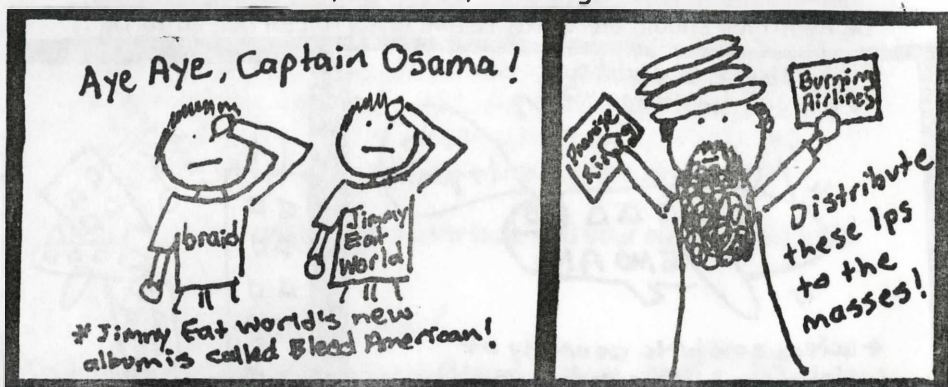 Aye Aye, Captain Osama!
braid
Jimmy
Eat
World
*Jimmy Eat World's new
album is called Bleed American!
Burning
Airlines
Distribute
these lps
to the
masses!